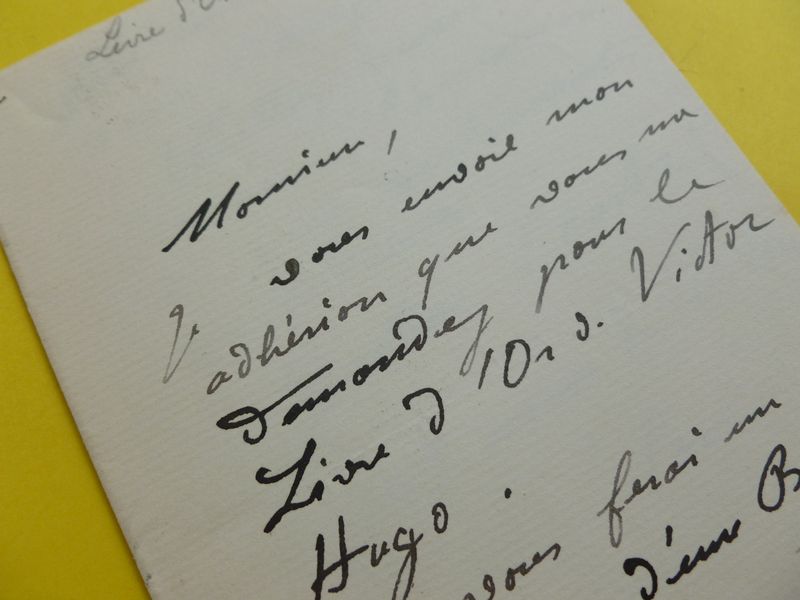 Livre d'O
Monsieur,
Je vous envoie mon
adhésion que vous me
demandez pour le
Livre d'Or d. Victor
Hugo.
vous ferai un
d'une B